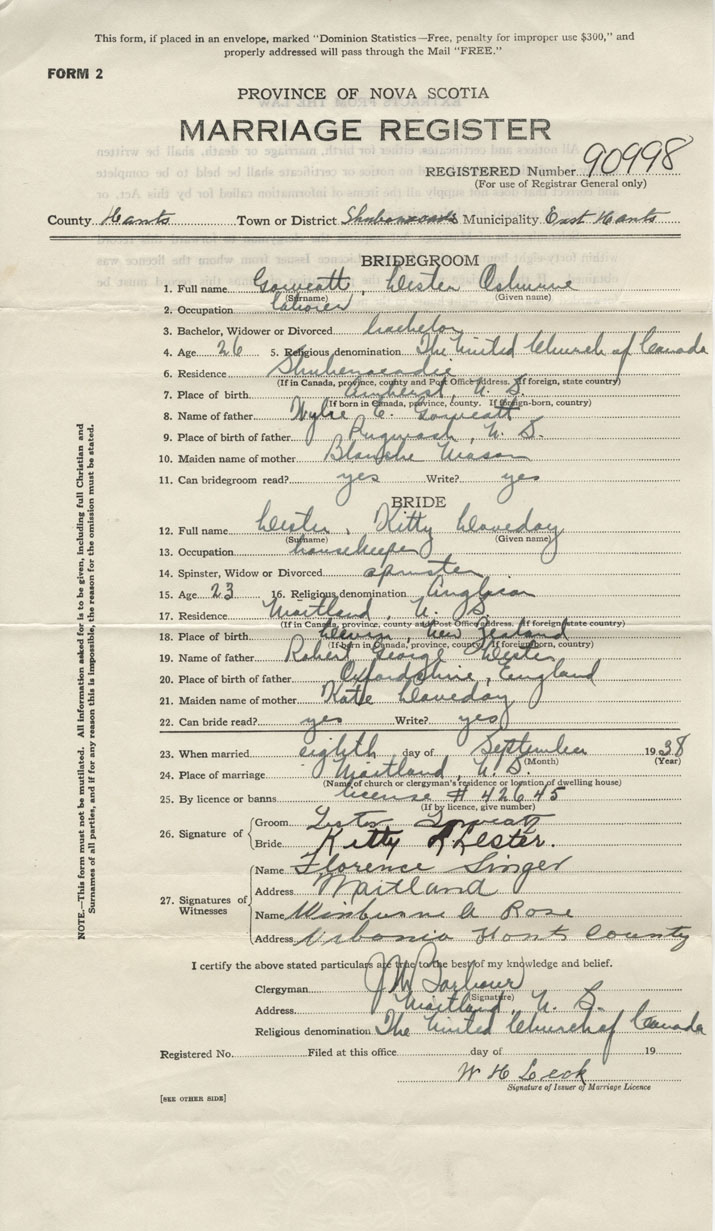 This form, if placed in an envelope, marked "Dominion Statistics—Free, penalty for improper use $300," and
properly addressed will pass through the Mail "FREE."
FORM 2
PROVINCE OF NOVA SCOTIA
MARRIAGE REGISTER
REGISTERED Number 90998
(For use of Registrar General only)
County Hants Town or District Municipality East Hants
BRIDEGROOM
1. Full name Gorveatt, Lester Osburne
(Surname) (Given name)
2. Occupation labourer
3. Bachelor, Widower or Divorced bachelor
4. Age 26 5. Religious denomination The United Church of Canada
6. Residence Shubenacadie
(If in Canada, province, county and Post Office address. If foreign, state country)
7. Place of birth Amherst, N. S.
(If born in Canada, province, county. If foreign-born, country)
8. Name of father Wylie E. Gorveatt
9. Place of birth of father Pugwash, N. S.
10. Maiden name of mother Blanche Mason
11. Can bridegroom read? yes Write? yes
BRIDE
12. Full name Lester, Kitty Loveday
(Surname) (Given name)
13. Occupation housekeeper
14. Spinster, Widow or Divorced spinster
15. Age 23 16. Religious denomination Anglican
17. Residence Maitland, N. S.
(If in Canada, province, county and Post Office address. If foreign, state country)
18. Place of birth Levin, New Zealand
(If born in Canada, province, county. If foreign-born, country)
19. Name of father Robert George Lester
20. Place of birth of father Oxfordshire, England
21. Maiden name of mother Kate Loveday
22. Can bride read? yes Write? yes
23. When married eighth day of September 1938
(Month) (Year)
24. Place of marriage Maitland, N. S.
(Name of church or clergyman's residence or location of dwelling house)
25. By licence or banns license # 42645
(If by licence, give number)
26. Signature of Groom Lester Gorveatt
Bride Kitty L Lester.
27. Signatures of Witnesses Name Florence Singer
Address Maitland
Name Winburne A Rose
Address Urbania Hants County
I certify the above stated particulars are true to the best of my knowledge and belief.
Clergyman J W Barbour
(Signature)
Address Maitland, N. S.
Religious denomination The United Church of Canada
Registered No. Filed at this office day of 19
W H Leck
Signature of Issuer of Marriage Licence
[SEE OTHER SIDE]
NOTE.—This form must not be mutilated. All information asked for is to be given, including full Christian and
Surnames of all parties, and if for any reason this is impossible, the reason for the omission must be stated.